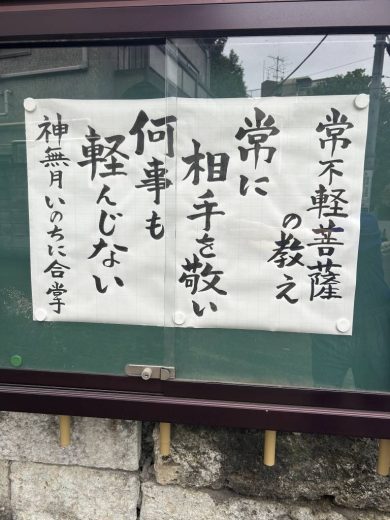 常不軽菩薩
の教え
常に
相手を敬い
何事も
軽んじない
神無月いのちに合掌